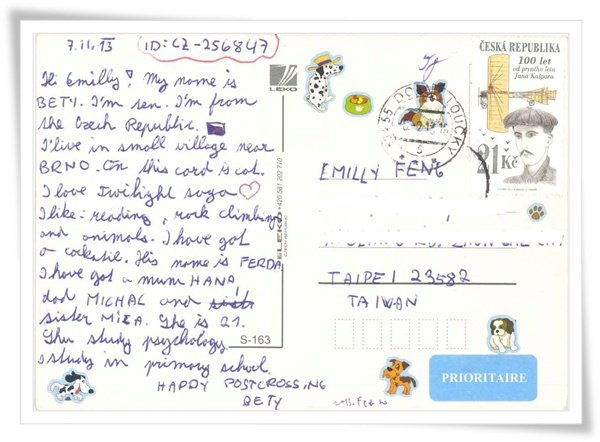 7.11.13 ID:CZ-256847
Hi Emilly! My name is
BETY. I'm ten. I'm from
the Czech Republic.
I live in small village near
BRNO. On this card is cat.
I love Twilight saga ♡
I like: reading, rock climbing
and animals. I have got
a cockatil. His name is FERDA
I have got a mum HANA
dad MICHAL and
sister MÍŠA. She is 21.
She study psychology
I study in primary school.
HAPPY POSTCROSSING
BETY
LEKO
LEKO +420 581 202 770
CZECH REPUBLIC
S-163
ČESKÁ REPUBLIKA
100 let
od prvního letu
Jana Kašpara
21 Kč
EMILLY FENG
TAIPEI 23582
TAIWAN
PRIORITAIRE